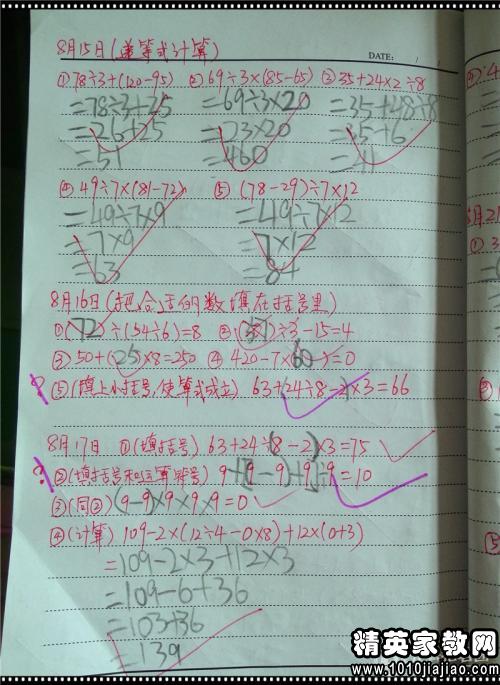 8月15日(递等式计算)
DATE: / /
①78÷3+(120-95) ②69÷3×(85-65) ③35+24×2÷8
=78÷3+25 =69÷3×20 =35+48÷8
=26+25 =23×20 =35+6
=51 =460 =41
④49÷7×(81-72) ⑤(78-29)÷7×12
=49÷7×9 =49÷7×12
=7×9 =7×12
=63 =84
8月16日(把合适的数填在括号里)
①(72)÷(54÷6)=8 ②(57)÷3-15=4
③50+(25)×8=250 ④420-7×(60)=0
? ⑤(填上小括号,使算式成立) 63+24÷8-2×3=66
8月17日 ①(填括号) 63+24÷(8-2)×3=75
? ②(填括号和运算符号) 9+[(9-9)+9]÷9=10
③(同②) (9-9)×9×9×9=0
④(计算) 109-2×(12÷4-0×8)+12×(0+3)
=109-2×3+12×3
=109-6+36
=103+36
=139
8月21
精英家教网
www.1010jiajiao.com